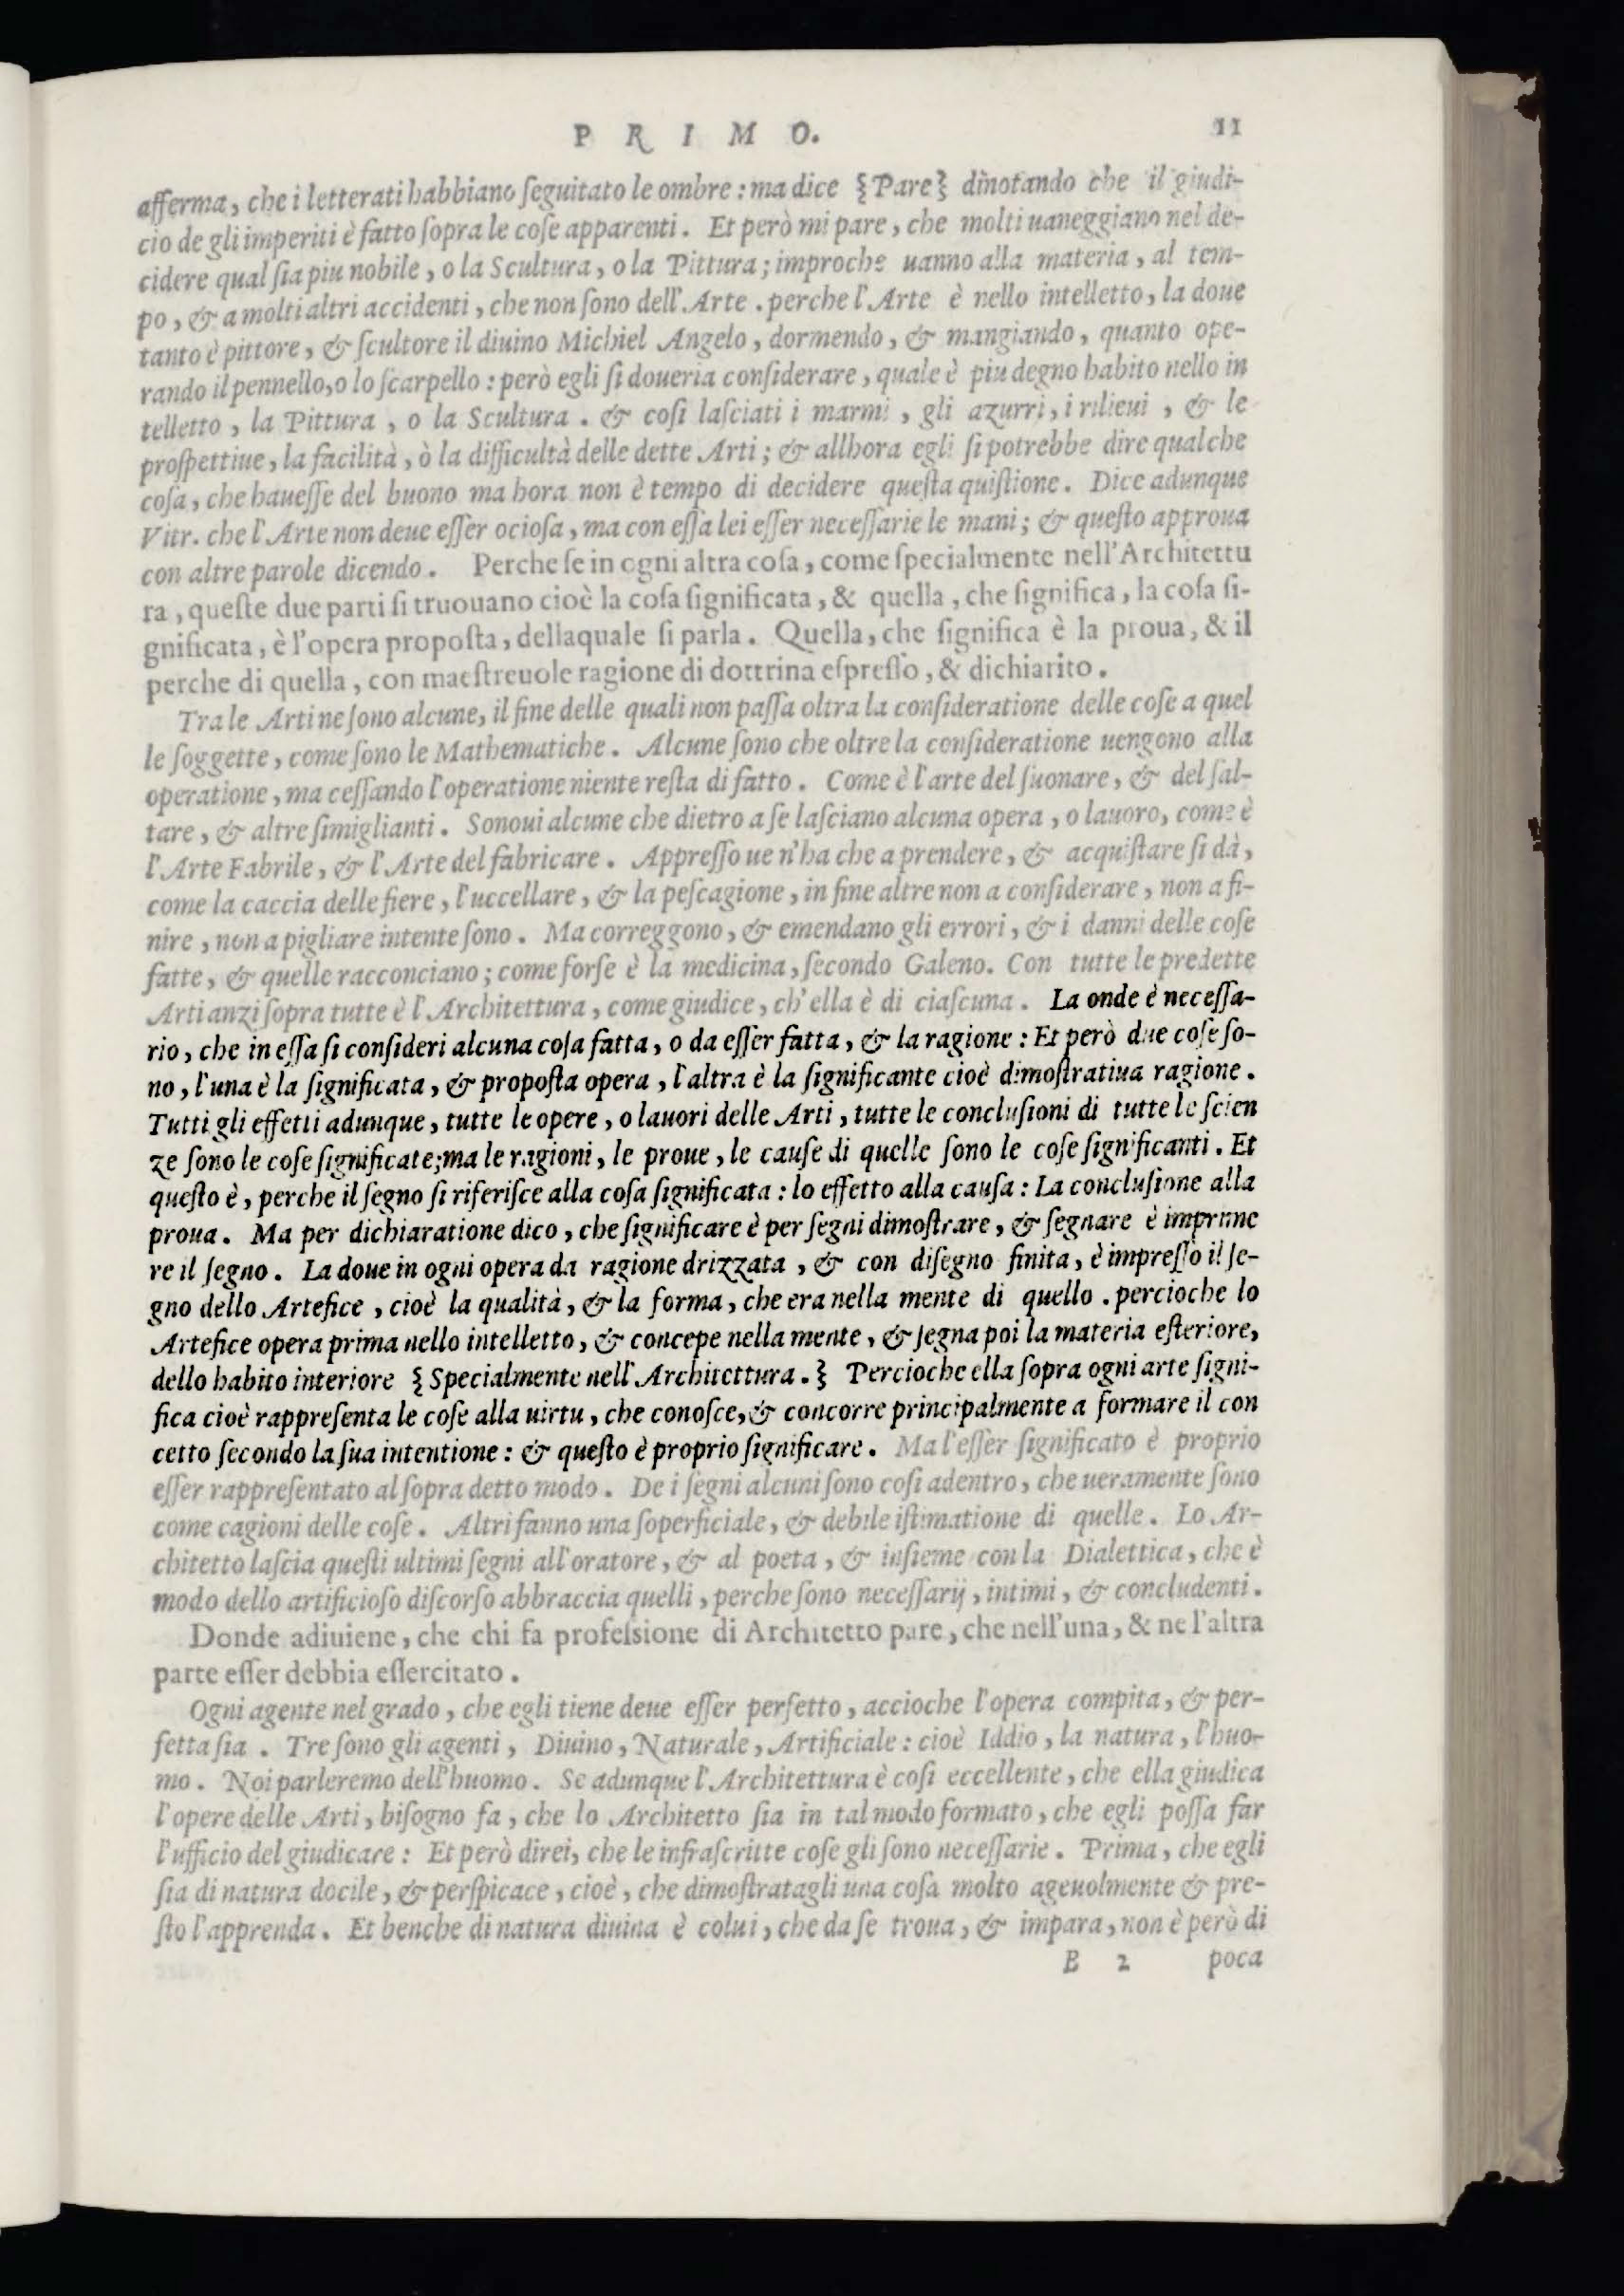 PRIMO. 11
afferma, che i letterati habbiano ſeguitato le ombre: ma dice {Pare} dinotando che il giudi-
cio de gli imperiti è fatto ſopra le coſe apparenti. Et però mi pare, che molti uaneggiano nel de-
cidere qual ſia piu nobile, o la Scultura, o la Pittura; improche uanno alla materia, al tem-
po, & a molti altri accidenti, che non ſono dell'Arte. perche l'Arte è nello intelletto, la doue
tanto è pittore, & ſcultore il diuino Michiel Angelo, dormendo, & mangiando, quanto ope-
rando il pennello, o lo ſcarpello: però egli ſi doueria conſiderare, quale è piu degno habito nello in
telletto, la Pittura, o la Scultura. & coſi laſciati i marmi, gli azurri, i rilieui, & le
proſpettiue, la facilità, ò la difficultà delle dette Arti; & allhora egli ſi potrebbe dire qualche
coſa, che haueſſe del buono ma hora non è tempo di decidere queſta quiſtione. Dice adunque
Vitr. che l'Arte non deue eſſer ocioſa, ma con eſſa lei eſſer neceſſarie le mani; & queſto approua
con altre parole dicendo. Perche ſe in ogni altra coſa, come ſpecialmente nell'Architettu
ra, queſte due parti ſi truouano cioè la coſa ſignificata, & quella, che ſignifica, la coſa ſi-
gnificata, è l'opera propoſta, dellaquale ſi parla. Quella, che ſignifica è la proua, & il
perche di quella, con maeſtreuole ragione di dottrina eſpreſſo, & dichiarito.
Tra le Arti ne ſono alcune, il fine delle quali non paſſa oltra la conſideratione delle coſe a quel
le ſoggette, come ſono le Mathematiche. Alcune ſono che oltre la conſideratione uengono alla
operatione, ma ceſſando l'operatione niente reſta di fatto. Come è l'arte del ſuonare, & del ſal-
tare, & altre ſimiglianti. Sonoui alcune che dietro a ſe laſciano alcuna opera, o lauoro, come è
l'Arte Fabrile, & l'Arte del fabricare. Appreſſo ue n'ha che a prendere, & acquiſtare ſi dà,
come la caccia delle fiere, l'uccellare, & la peſcagione, in fine altre non a conſiderare, non a fi-
nire, non a pigliare intente ſono. Ma correggono, & emendano gli errori, & i danni delle coſe
fatte, & quelle racconciano; come forſe è la medicina, ſecondo Galeno. Con tutte le predette
Arti anzi ſopra tutte è l'Architettura, come giudice, ch'ella è di ciaſcuna. La onde è neceſſa-
rio, che in eſſa ſi conſideri alcuna coſa fatta, o da eſſer fatta, & la ragione: Et però due coſe ſo-
no, l'una è la ſignificata, & propoſta opera, l'altra è la ſignificante cioè dimoſtratiua ragione.
Tutti gli effetti adunque, tutte le opere, o lauori delle Arti, tutte le concluſioni di tutte le ſcien
ze ſono le coſe ſignificate; ma le ragioni, le proue, le cauſe di quelle ſono le coſe ſignificanti. Et
queſto è, perche il ſegno ſi riferiſce alla coſa ſignificata: lo effetto alla cauſa: La concluſione alla
proua. Ma per dichiaratione dico, che ſignificare è per ſegni dimoſtrare, & ſegnare è imprime
re il ſegno. La doue in ogni opera da ragione drizzata, & con diſegno finita, è impreſſo il ſe-
gno dello Artefice, cioè la qualità, & la forma, che era nella mente di quello. percioche lo
Artefice opera prima nello intelletto, & concepe nella mente, & ſegna poi la materia eſteriore,
dello habito interiore {Specialmente nell'Architettura.} Percioche ella ſopra ogni arte ſigni-
fica cioè rappreſenta le coſe alla uirtu, che conoſce, & concorre principalmente a formare il con
cetto ſecondo la ſua intentione: & queſto è proprio ſignificare. Ma l'eſſer ſignificato è proprio
eſſer rappreſentato al ſopra detto modo. De i ſegni alcuni ſono coſi adentro, che ueramente ſono
come cagioni delle coſe. Altri fanno una ſoperficiale, & debile iſtimatione di quelle. Lo Ar-
chitetto laſcia queſti ultimi ſegni all'oratore, & al poeta, & inſieme con la Dialettica, che è
modo dello artificioſo diſcorſo abbraccia quelli, perche ſono neceſſarij, intimi, & concludenti.
Donde adiuiene, che chi fa profeſsione di Architetto pare, che nell'una, & ne l'altra
parte eſſer debbia eſſercitato.
Ogni agente nel grado, che egli tiene deue eſſer perfetto, accioche l'opera compita, & per-
fetta ſia. Tre ſono gli agenti, Diuino, Naturale, Artificiale: cioè Iddio, la natura, l'huo-
mo. Noi parleremo dell'huomo. Se adunque l'Architettura è coſi eccellente, che ella giudica
l'opere delle Arti, biſogno fa, che lo Architetto ſia in tal modo formato, che egli poſſa far
l'ufficio del giudicare: Et però direi, che le infraſcritte coſe gli ſono neceſſarie. Prima, che egli
ſia di natura docile, & perſpicace, cioè, che dimoſtratagli una coſa molto ageuolmente & pre-
ſto l'apprenda. Et benche di natura diuina è colui, che da ſe troua, & impara, non è però di
B 2 poca